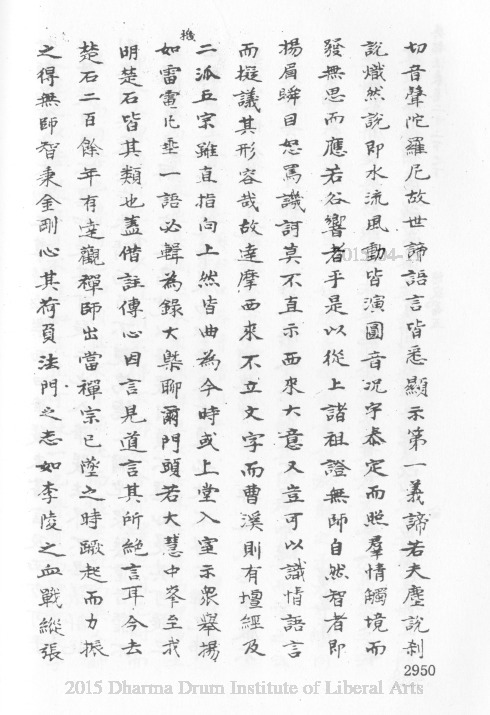 切音聲陀羅尼故世諦語言皆悉顯示第一義諦若夫塵說刹
說熾然說即水流風動皆演圓音況宇泰定而照羣情觸境而
發無思而應若谷響者乎是以從上諸祖證無師自然智者即
揚眉瞬目怒罵譏訶莫不直示西來大意又豈可以識情語言
而擬議其形容哉故達摩西來不立文字而曹溪則有壇經及
二派五宗雖直指向上然皆曲為今時或上堂入室示衆舉揚
機
如雷電比垂一語必輯為錄大槩聊爾門頭若大慧中峯至我
明楚石皆其類也蓋借註傳心因言見道言其所絕言耳今去
楚石二百餘年有達觀禪師出當禪宗已墜之時蹶起而力振
之得無師智秉金剛心其荷負法門之志如李陵之血戰縱張
2012-04-
2950
2015 Dharma Drum Institute of Liberal Arts